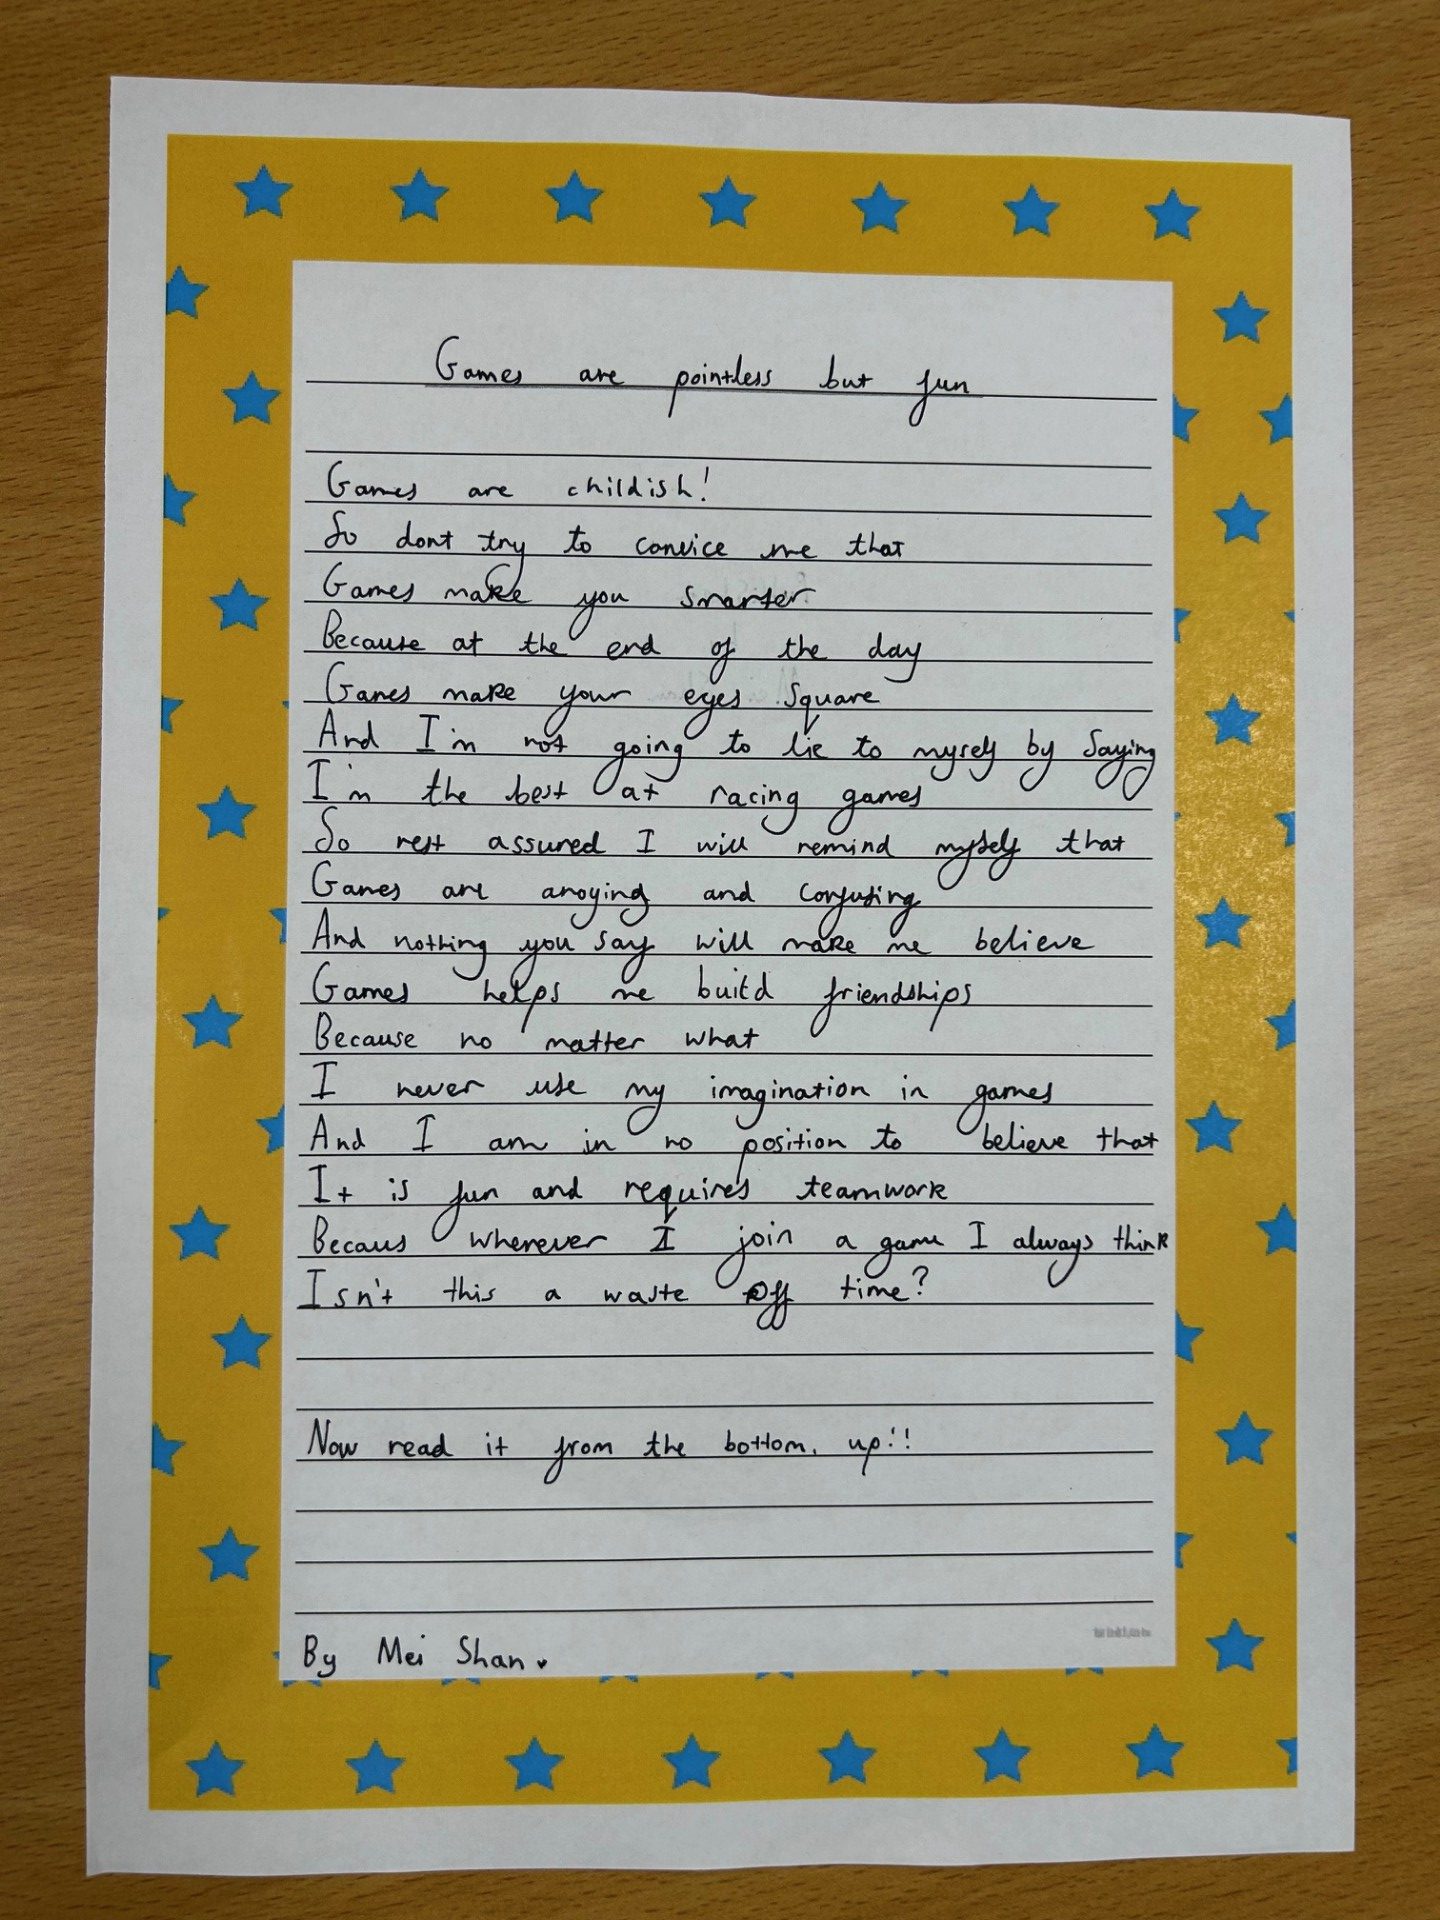 Games are pointless but fun
Games are childish!
So dont try to convice me that
Games make you smarter
Because at the end of the day
Games make your eyes square
And I'm not going to lie to myself by saying
I'm the best at racing games
So rest assured I will remind myself that
Games are anoying and confusing
And nothing you say will make me believe
Games helps me build friendships
Because no matter what
I never use my imagination in games
And I am in no position to believe that
It is fun and requires teamwork
Becaus wherever I join a game I always think
Isn't this a waste off time?
Now read it from the bottom. up!!
By Mei Shan.